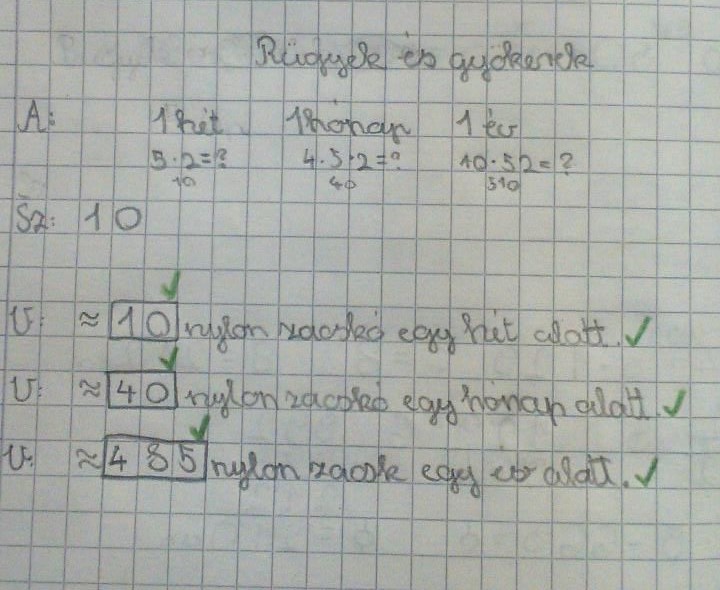 Rügyek és gyökerek
A: 1 hét 1 hónap 1 év
5·2=? 4·5·2=? 10·52=?
10 40 510
Sz: 10
V: ≈ 10 nylon zacskó egy hét alatt.
V: ≈ 40 nylon zacskó egy hónap alatt.
V: ≈ 485 nylon zacsk egy év alatt.